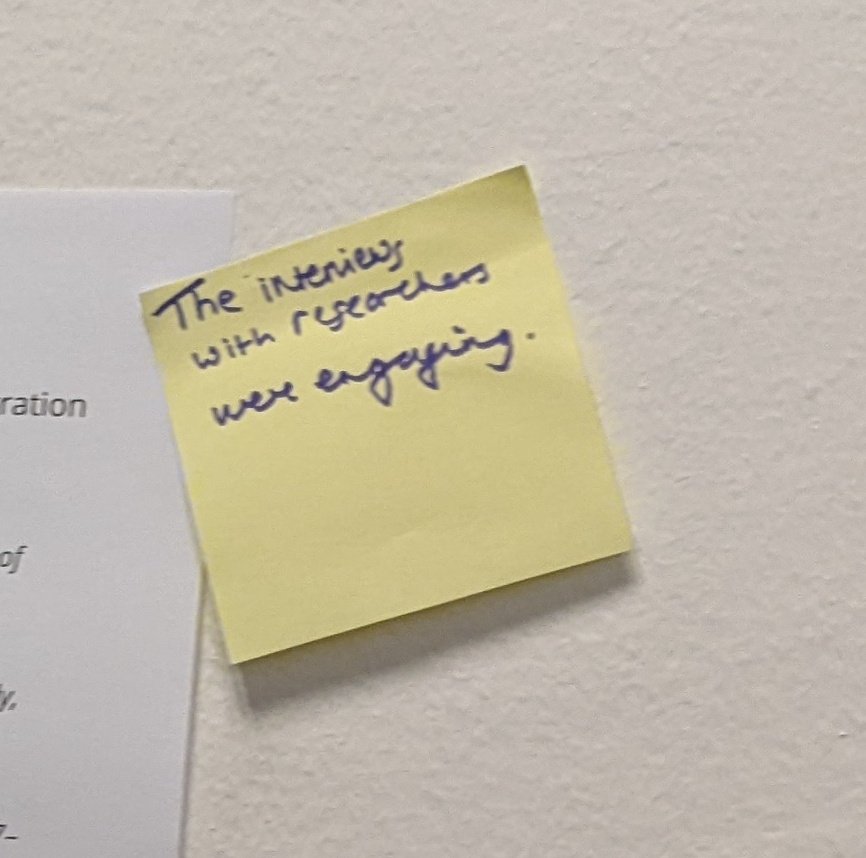 The interviews
with researchers
were engaging.
ration
of
y,